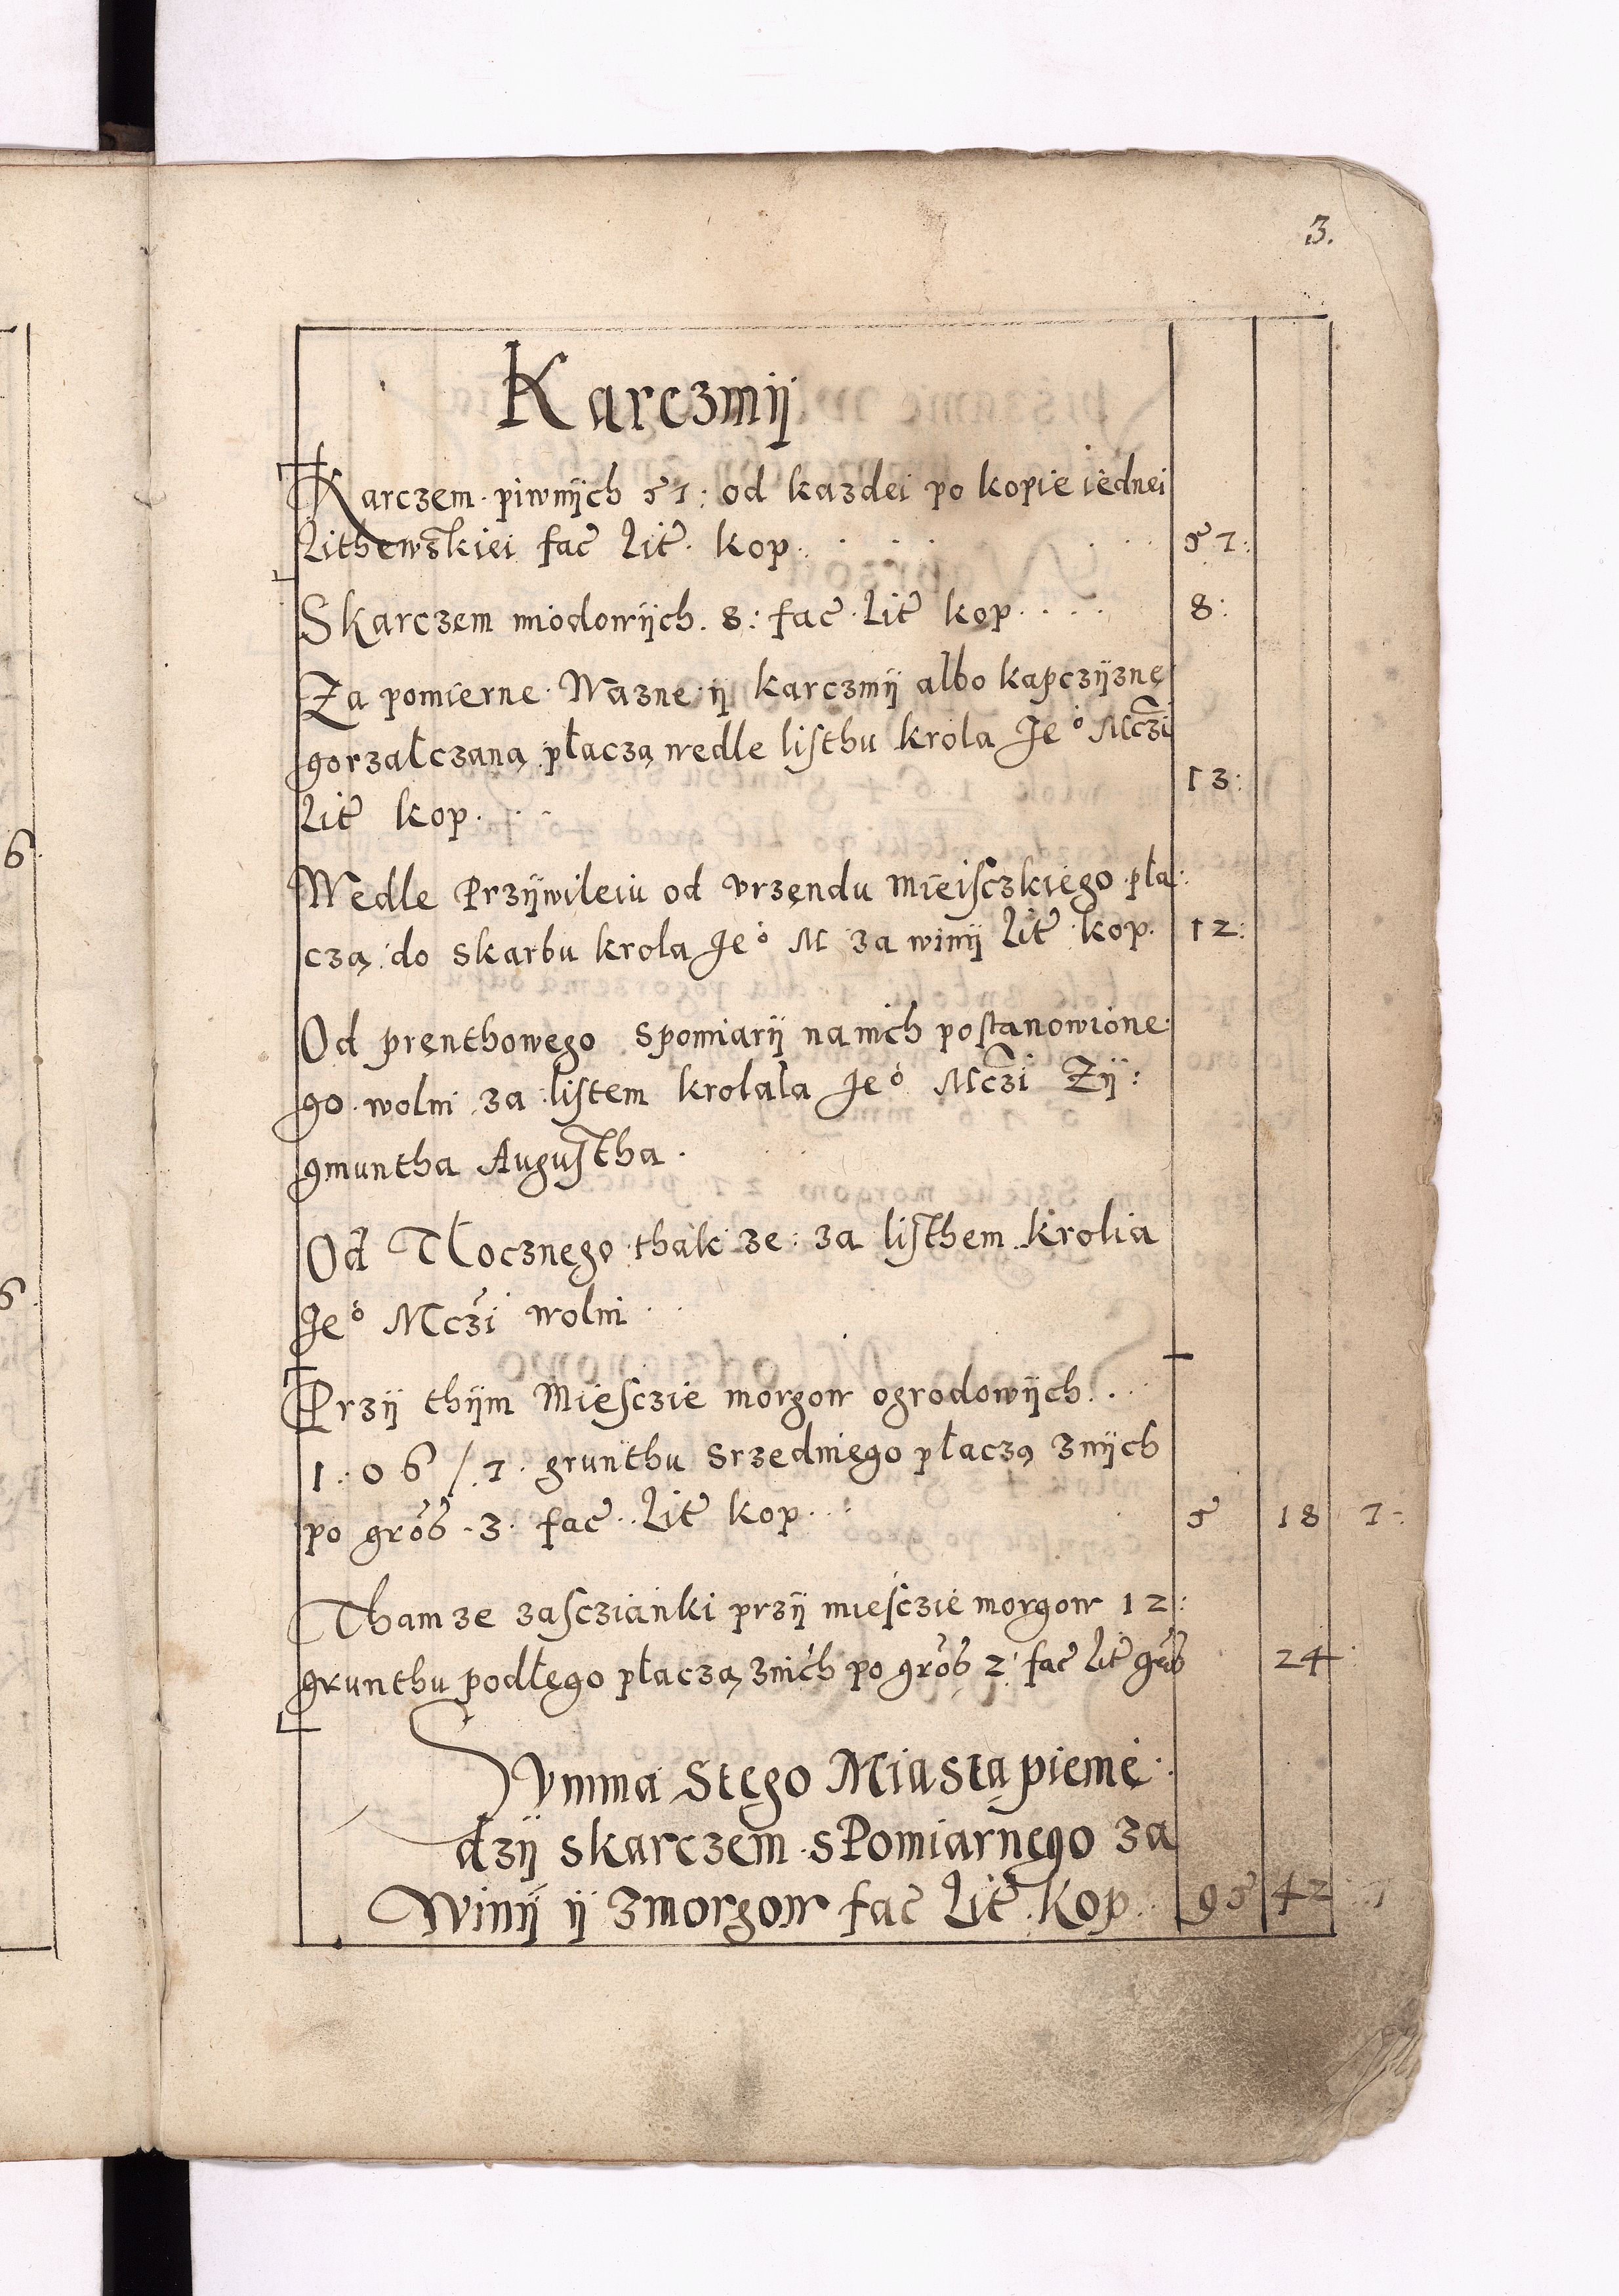 3.
Karczmÿ
Karczem piwnÿch 57: od kazdei po kopie iednei
Lithewskiei fac Lit kop . . . . 57:
Skarczem miodowÿch. 8: fac Lit kop . . . . 8:
Za pomierne Wazne ÿ karczmÿ albo kapczÿznę
gorzałczaną płaczą wedle listhu krola Jeº Mczi
Lit kop . . . 13:
Wedle Przÿwileiu od vrzendu mieisczkiego pła:
czą do skarbu krola Jeº M za winÿ Lit kop. 12:
Od prenthowego spomiarÿ na nich postanowione
go wolni za listem krolala Jeº Mczi Zÿ:
gmuntha Augustha.
Od Tłocznego thak ze: za listhem krolia
Jeº Mczi wolni
Przÿ thÿm Miesczie morgow ogrodowÿch . . .
1:06/7. grunthu srzedniego płaczą znÿch
po grob 3. fac Lit kop . . : 5 18 7:
Tham ze zasczianki przÿ miesczie morgow 12:
grunthu podłego płaczą znich po grob 2 fac Lit grob 24
Summa stego Miasta pienię
dzÿ skarczem spomiarnego za
Winÿ ÿ zmorgow fac Lit kop 95 42 7
6.
6.